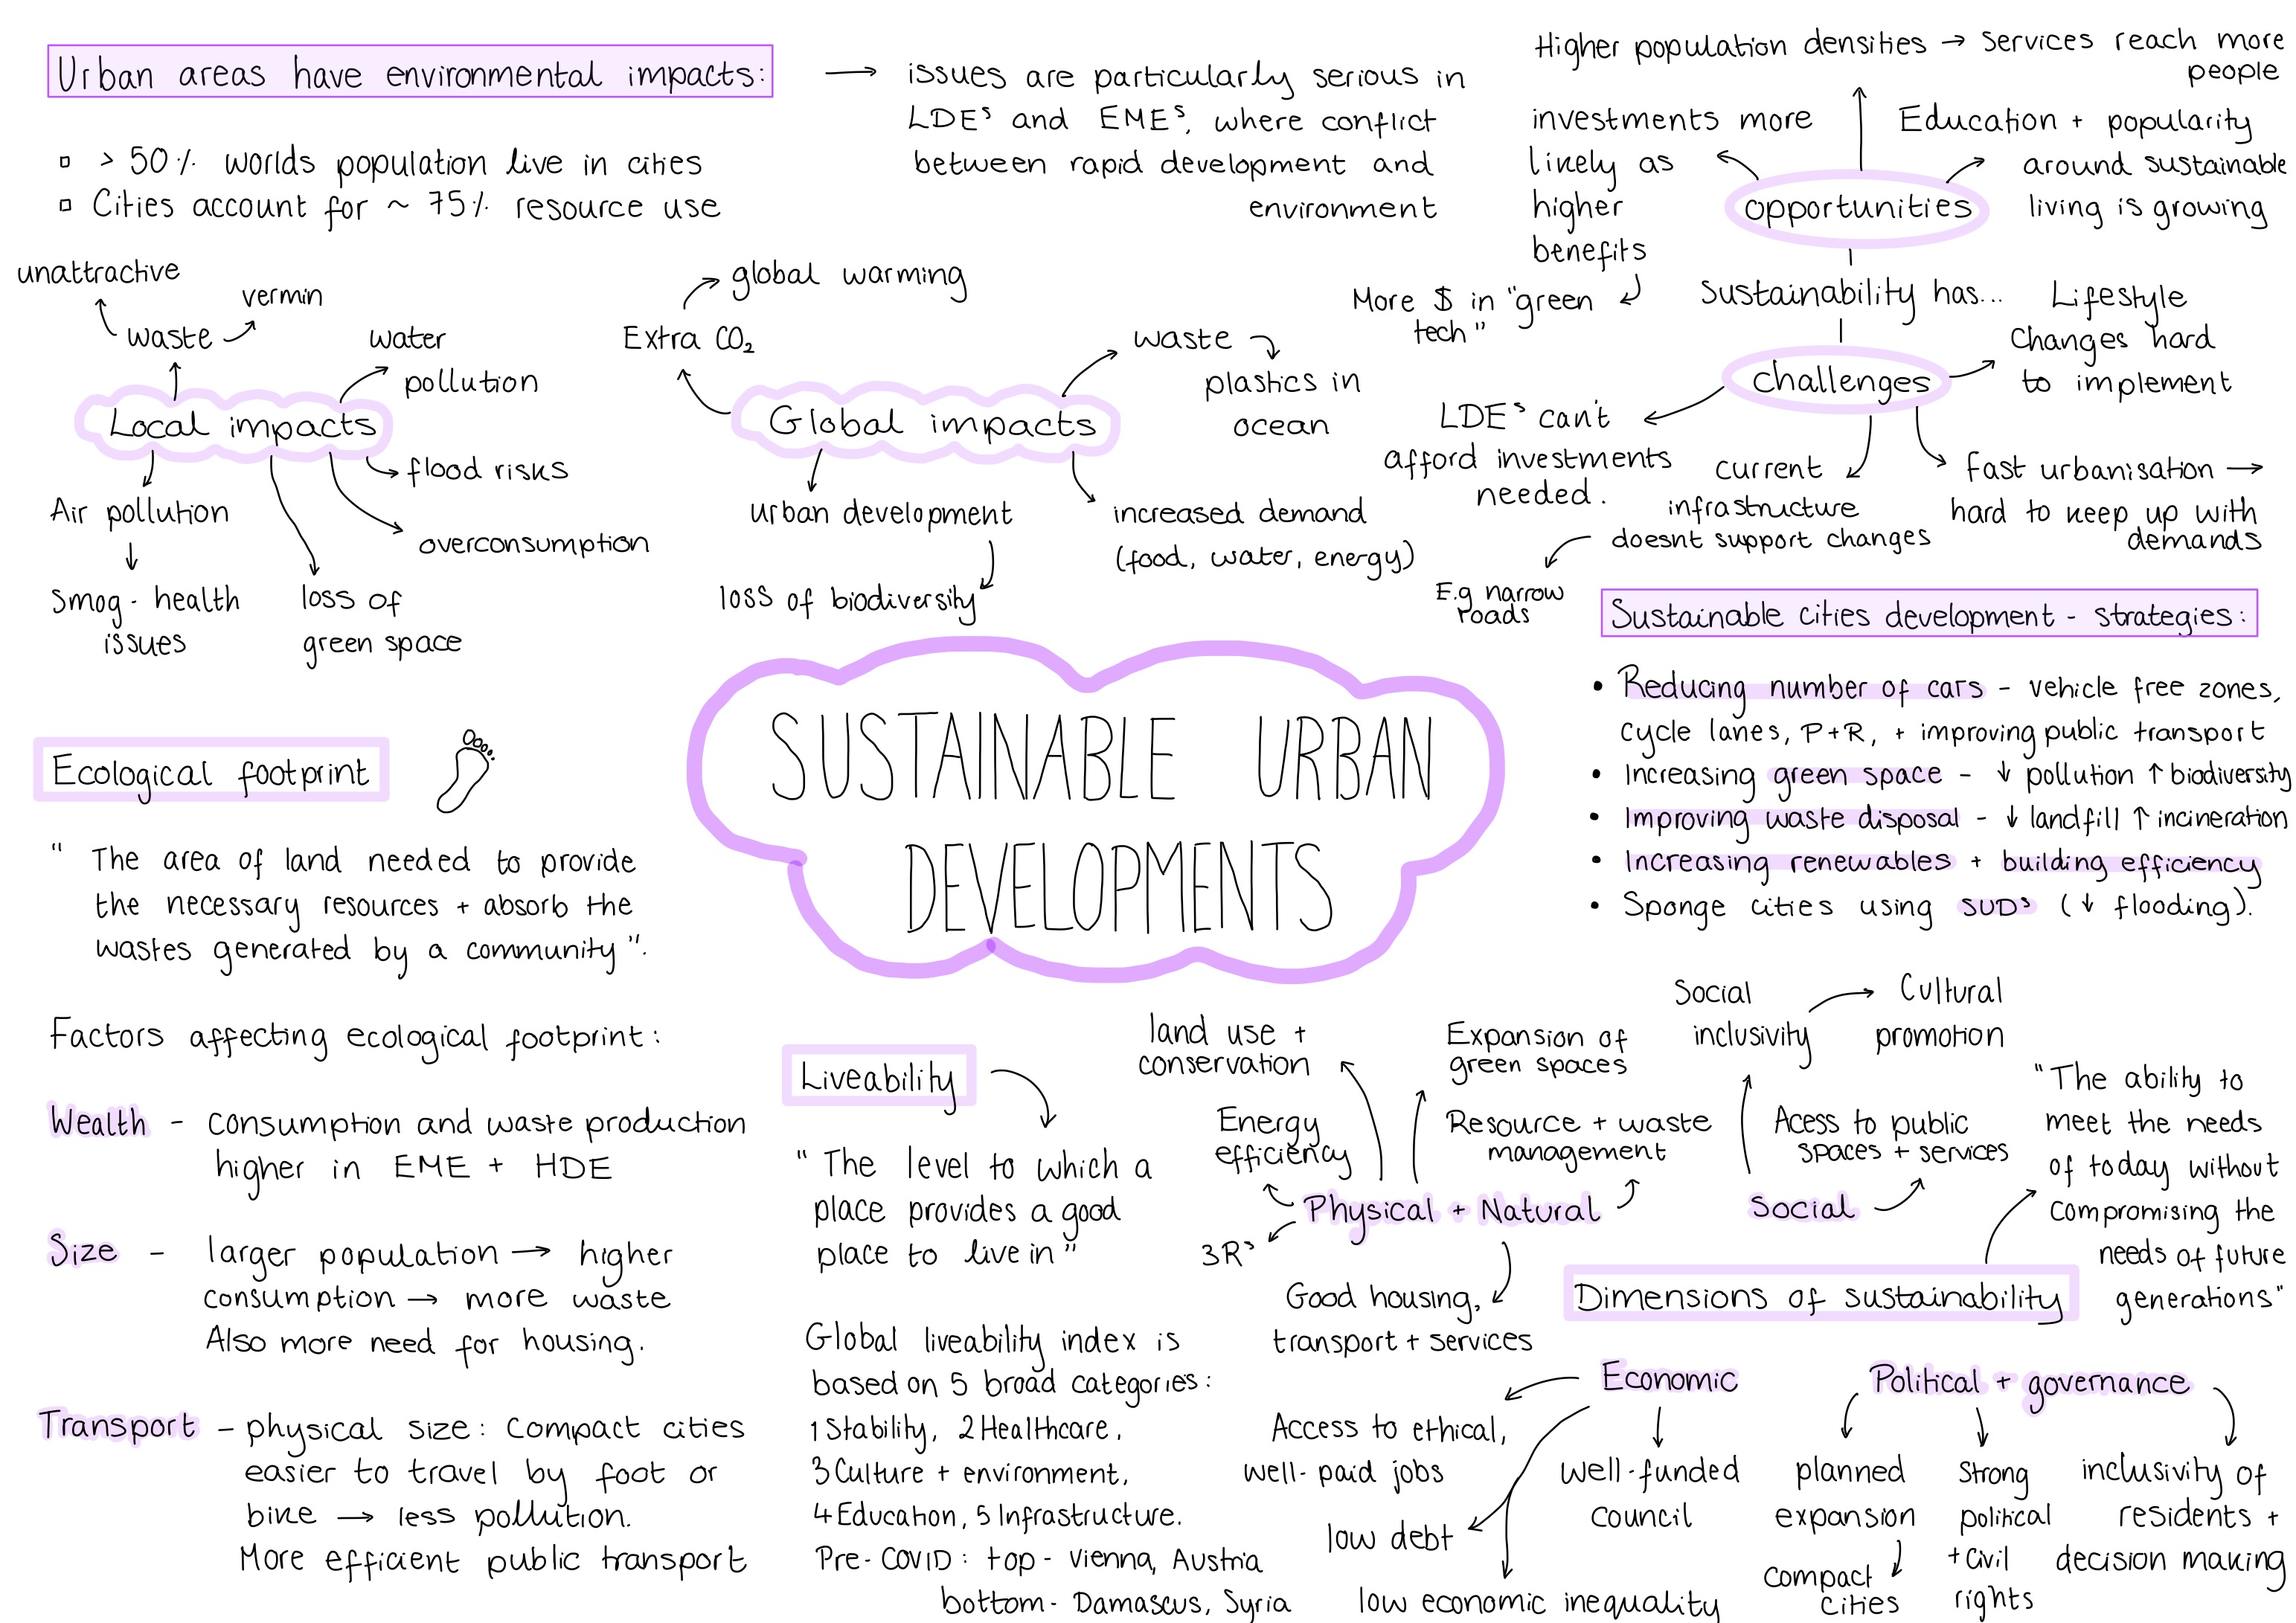 Urban areas have environmental impacts:
→ issues are particularly serious in
LDEs and EMEs, where conflict
between rapid development and
environment
▫ > 50% worlds population live in cities
▫ Cities account for ~ 75% resource use
unattractive
vermin
waste
water
pollution
Local impacts
flood risks
Air pollution
overconsumption
Smog - health
issues
loss of
green space
global warming
Extra CO₂
waste
plastics in
ocean
Global impacts
urban development
increased demand
(food, water, energy)
loss of biodiversity
Higher population densities → services reach more
people
investments more
likely as
higher
benefits
Education + popularity
around sustainable
living is growing
opportunities
More $ in "green
tech"
Sustainability has...
Lifestyle
Changes hard
to implement
challenges
LDEs can't
afford investments
needed.
current
infrastructure
doesnt support changes
fast urbanisation →
hard to keep up with
demands
E.g narrow
roads
Sustainable cities development - strategies:
• Reducing number of cars - vehicle free zones,
cycle lanes, P+R, + improving public transport
• Increasing green space - ↓ pollution ↑ biodiversity
• Improving waste disposal - ↓ landfill ↑ incineration
• Increasing renewables + building efficiency
• Sponge cities using SUDs (↓ flooding).
SUSTAINABLE URBAN
DEVELOPMENTS
Ecological footprint
" The area of land needed to provide
the necessary resources + absorb the
wastes generated by a community".
Factors affecting ecological footprint:
Wealth - consumption and waste production
higher in EME + HDE
Size - larger population → higher
consumption → more waste
Also more need for housing.
Transport - physical size: Compact cities
easier to travel by foot or
bike → less pollution.
More efficient public transport
Liveability
" The level to which a
place provides a good
place to live in"
Global liveability index is
based on 5 broad categories:
1 Stability, 2 Healthcare,
3 Culture + environment,
4 Education, 5 Infrastructure.
Pre-COVID: top - Vienna, Austria
bottom - Damascus, Syria
land use +
conservation
Expansion of
green spaces
Energy
efficiency
Resource + waste
management
Physical + Natural
3Rs
Good housing,
transport + services
Social
inclusivity
Cultural
promotion
Acess to public
spaces + services
Social
"The ability to
meet the needs
of today without
compromising the
needs of future
generations"
Dimensions of sustainability
Economic
Access to ethical,
well-paid jobs
well-funded
council
low debt
low economic inequality
Political + governance
planned
expansion
compact
cities
Strong
political
+ civil
rights
inclusivity of
residents +
decision making